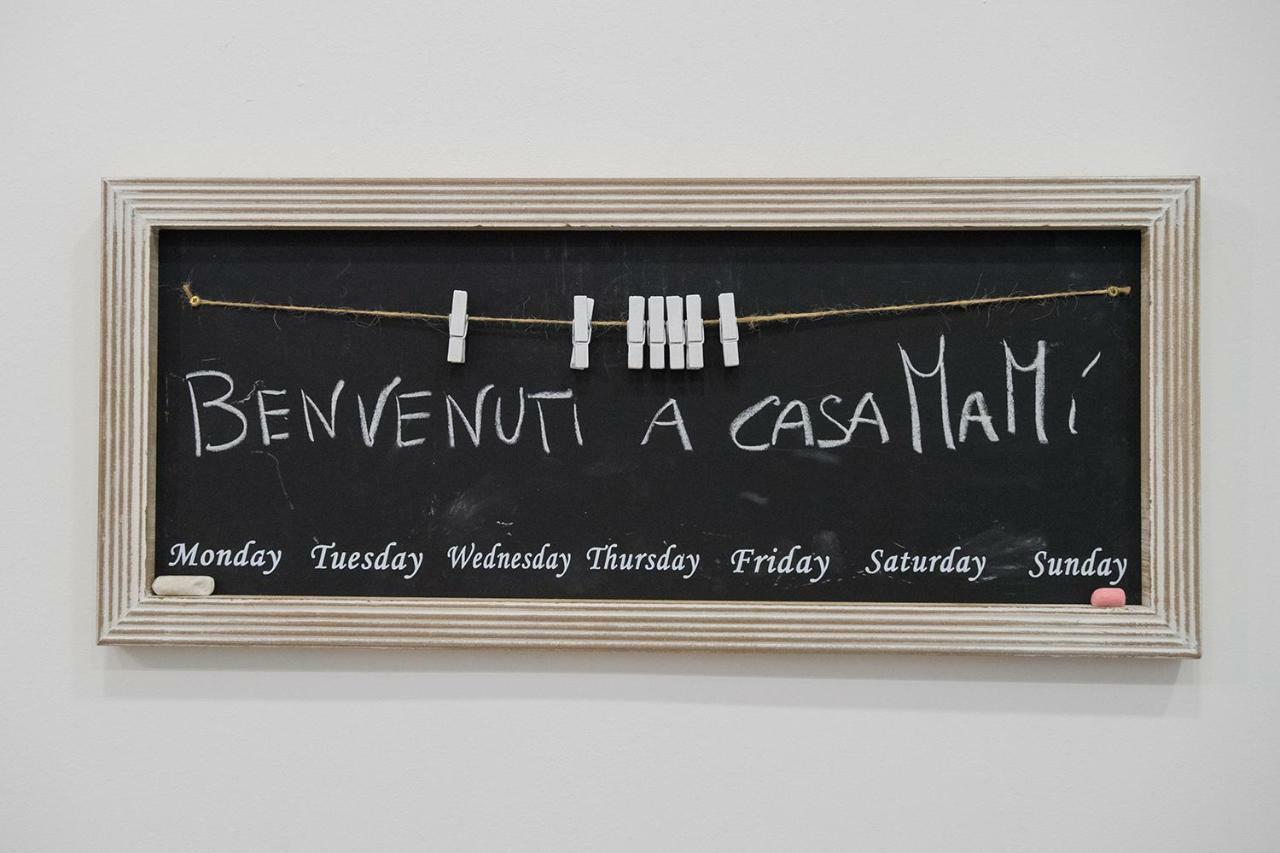 BENVENUTI A CASA MaMí
Monday Tuesday Wednesday Thursday Friday Saturday Sunday